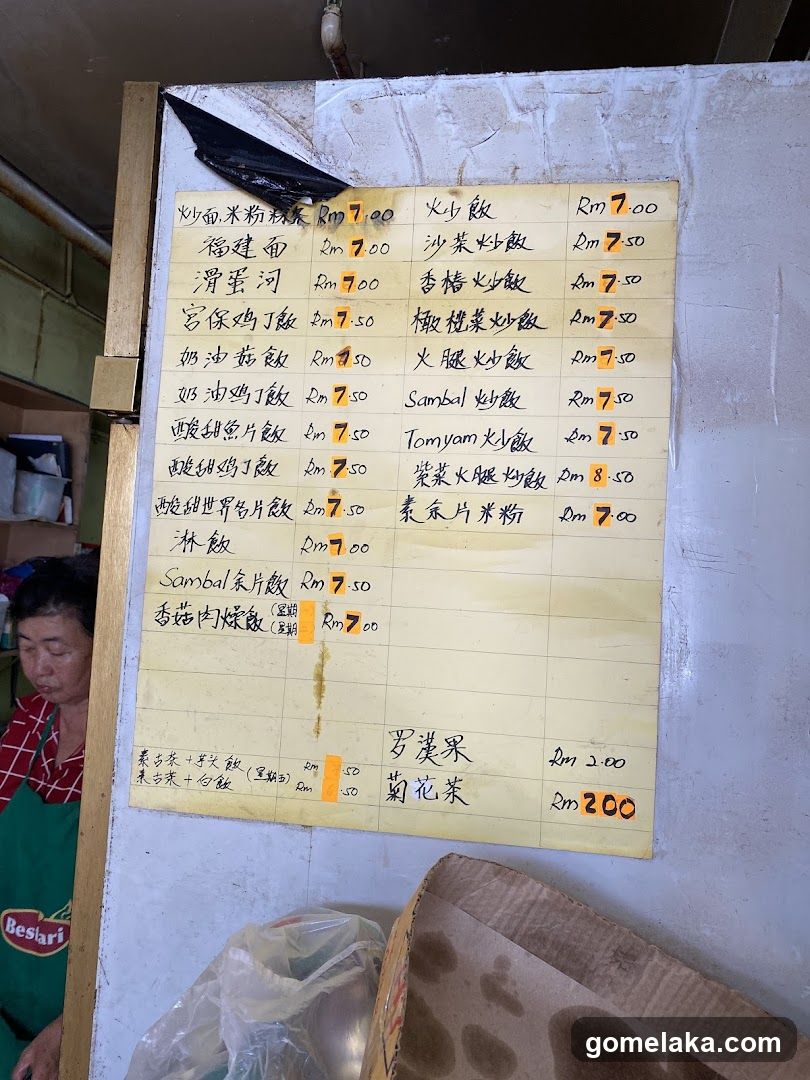 炒面.米粉粿条 Rm 7.00
福建面 Rm 7.00
滑蛋河 Rm 7.00
宫保鸡丁飯 Rm 7.50
奶油菇飯 Rm 7.50
奶油鸡丁飯 Rm 7.50
酸甜魚片飯 Rm 7.50
酸甜鸡丁飯 Rm 7.50
酸甜世界名片飯 Rm 7.50
淋飯 Rm 7.00
Sambal 余片飯 Rm 7.50
香菇肉燥飯 (星期 (星期 Rm 7.00
素古茶+芋头飯 Rm .50
素古茶+白飯 (星期五) Rm .50
炒飯 Rm 7.00
沙菜炒飯 Rm 7.50
香椿炒飯 Rm 7.50
橄榄菜炒飯 Rm 7.50
火腿炒飯 Rm 7.50
Sambal 炒飯 Rm 7.50
Tomyam 炒飯 Rm 7.50
紫菜火腿炒飯 Rm 8.50
素余片米粉 Rm 7.00
罗漢果 Rm 2.00
菊花茶 Rm 200
Bestari
gomelaka.com